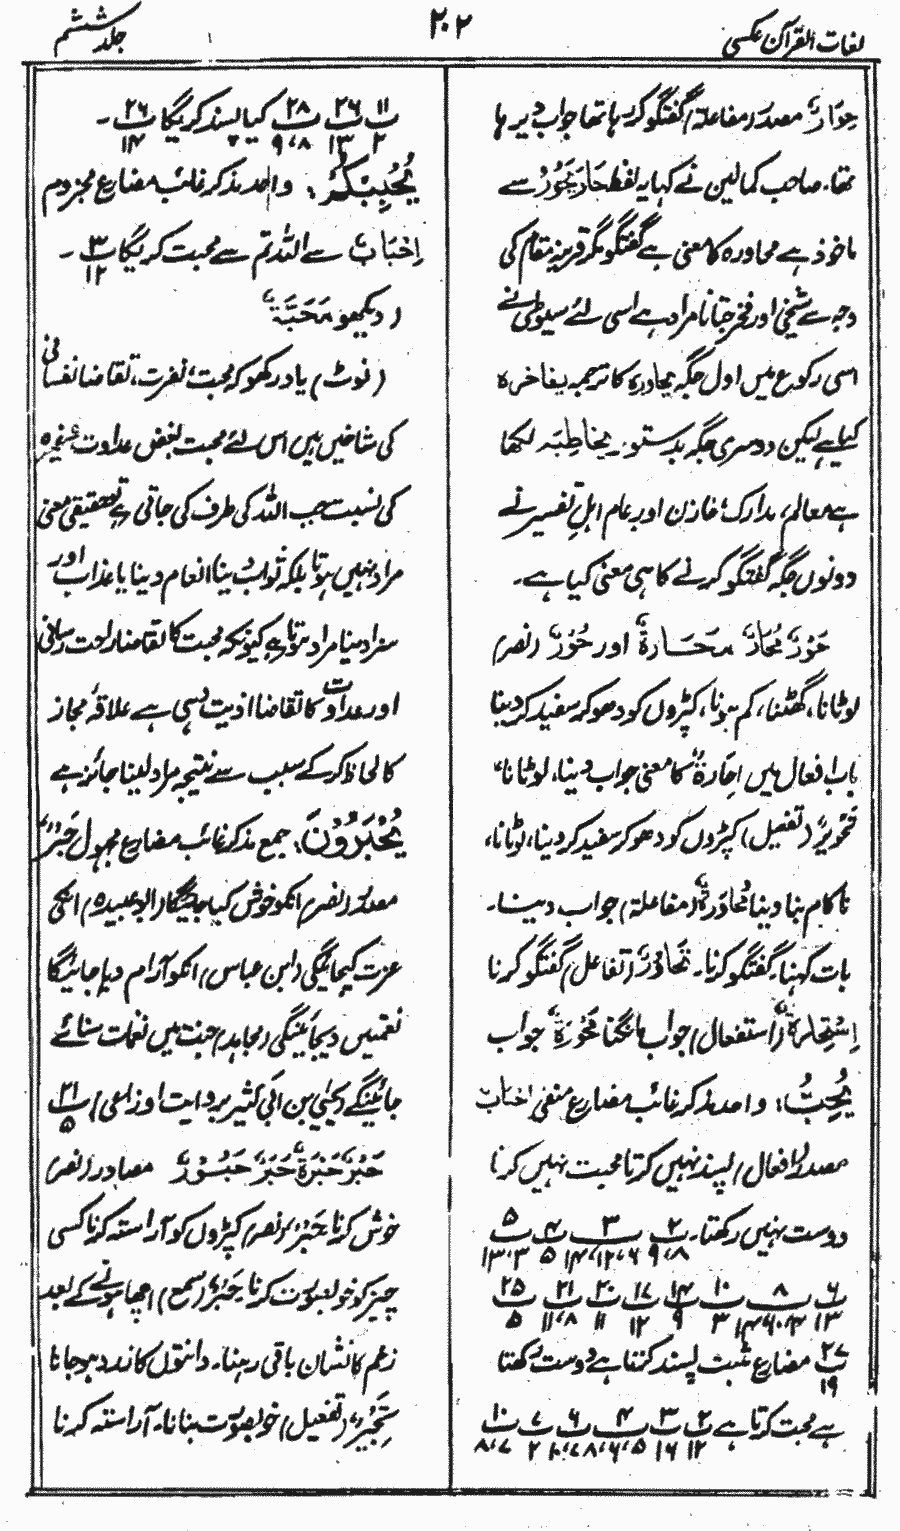 لغات القرآن عکسی
۲۰۲
جلد ششم
حِوَارٌ مصدر (مفاعلۃ) گفتگو کر رہا تھا جواب دیر ہا
تھا۔ صاحب کمالین نے کہا یہ لفظ حَارَ یَحُوْرُ سے
ماخوذ ہے محاورہ کا معنی ہے گفتگو مگر قرینۂ مقام کی
وجہ سے شیخی اور فخر جتانا مراد ہے اسی لئے سیوطی نے
اسی رکوع میں اول جگہ یحاورہ کا ترجمہ یفاخرہ
کیا ہے لیکن دوسری جگہ بدستور یخاطبہ لکھا
ہے معالم، مدارک، خازن اور عام اہل تفسیر نے
دونوں جگہ گفتگو کرنے کا ہی معنی کیا ہے۔
حَوْرٌ مَحَارٌ مَحَارَۃٌ اور حُوُوْرٌ (نصر)
لوٹانا، گھٹنا، کم ہونا، کپڑوں کو دھو کر سفید کر دینا
باب افعال میں اِحَارَۃٌ کا معنی جواب دینا، لوٹانا،
تَحْوِیْرٌ (تفعیل) کپڑوں کو دھو کر سفید کر دینا، لوٹانا،
ناکام بنا دینا مُحَاوَرَۃٌ (مفاعلۃ) جواب دینا۔
بات کہنا۔ گفتگو کرنا۔ تَحَاوُرٌ (تفاعل) گفتگو کرنا
اِسْتِحَارَۃٌ (استفعال) جواب مانگنا مَحُوْرَۃٌ جواب
یُحِبُّ: واحد مذکر غائب مضارع منفی اِحْبَابٌ
مصدر (افعال) پسند نہیں کرتا محبت نہیں کرتا
دوست نہیں رکھتا۔ پ۲ ۸، ۹ پ۳ ۶، ۱۲، ۱۴ پ۴ ۵ پ۵ ۳، ۱۳
پ۶ ۱۳ پ۸ ۱۰، ۱۴ پ۱۰ ۳ پ۱۴ ۹ پ۱۷ ۱۲ پ۲۰ ۱۱ پ۲۱ ۸، ۱۱ پ۲۵ ۵
پ۲۷ ۱۹ مضارع مثبت پسند کرتا ہے دوست رکھتا
ہے محبت کرتا ہے پ۲ ۱۲ پ۳ ۱۶ پ۴ ۵، ۶، ۸ پ۶ ۷، ۱۰ پ۷ ۲ پ۱۰ ۷، ۸
پ۱۱ ۲ پ۲۶ ۱۳ پ۲۸ ۸، ۹ کیا پسند کریگا پ۲۶ ۱۴۔
یُحْبِبْکُمْ: واحد مذکر غائب مضارع مجزوم
اِحْبَابٌ سے اللہ تم سے محبت کریگا پ۳ ۱۲۔
(دیکھو مَحَبَّۃً)
(نوٹ) یاد رکھو کہ محبت، نفرت، تقاضا نفسانی
کی شاخیں ہیں اس لئے محبت بغض عداوت غیرہ
کی نسبت جب اللہ کی طرف کی جاتی ہے تو حقیقی معنی
مراد نہیں ہوتا بلکہ ثواب دینا انعام دینا یا عذاب اور
سزا دینا مراد ہوتا ہے کیونکہ محبت کا تقاضا راحت رسانی
اور عداوت کا تقاضا اذیت دہی ہے علاقۂ مجاز
کا لحاظ کر کے سبب سے نتیجہ مراد لینا جائز ہے
یُحْبَرُوْنَ: جمع مذکر غائب مضارع مجہول حَبْرٌ
مصدر (نصر) انکو خوش کیا جائیگا (ابو عبیدہ) انکی
عزت کیجائیگی (ابن عباس) انکو آرام دیا جائیگا
نعمتیں دیجائینگی (مجاہد) جنت میں نغمات سنائے
جائینگے (یحیی بن ابی کثیر بروایت اوزاعی) پ۲۱ ۵
حَبْرٌ حَبْرَۃٌ حَبَرٌ حُبُوْرٌ مصادر (نصر)
خوش کرنا حَبْرٌ (نصر) کپڑوں کو آراستہ کرنا کسی
چیز کو خوبصورت کرنا۔ حَبَرٌ (سمع) اچھا ہونے کے بعد
زخم کا نشان باقی رہنا۔ دانتوں کا زرد ہو جانا
تَحْبِیْرٌ (تفعیل) خوبصورت بنانا۔ آراستہ کرنا